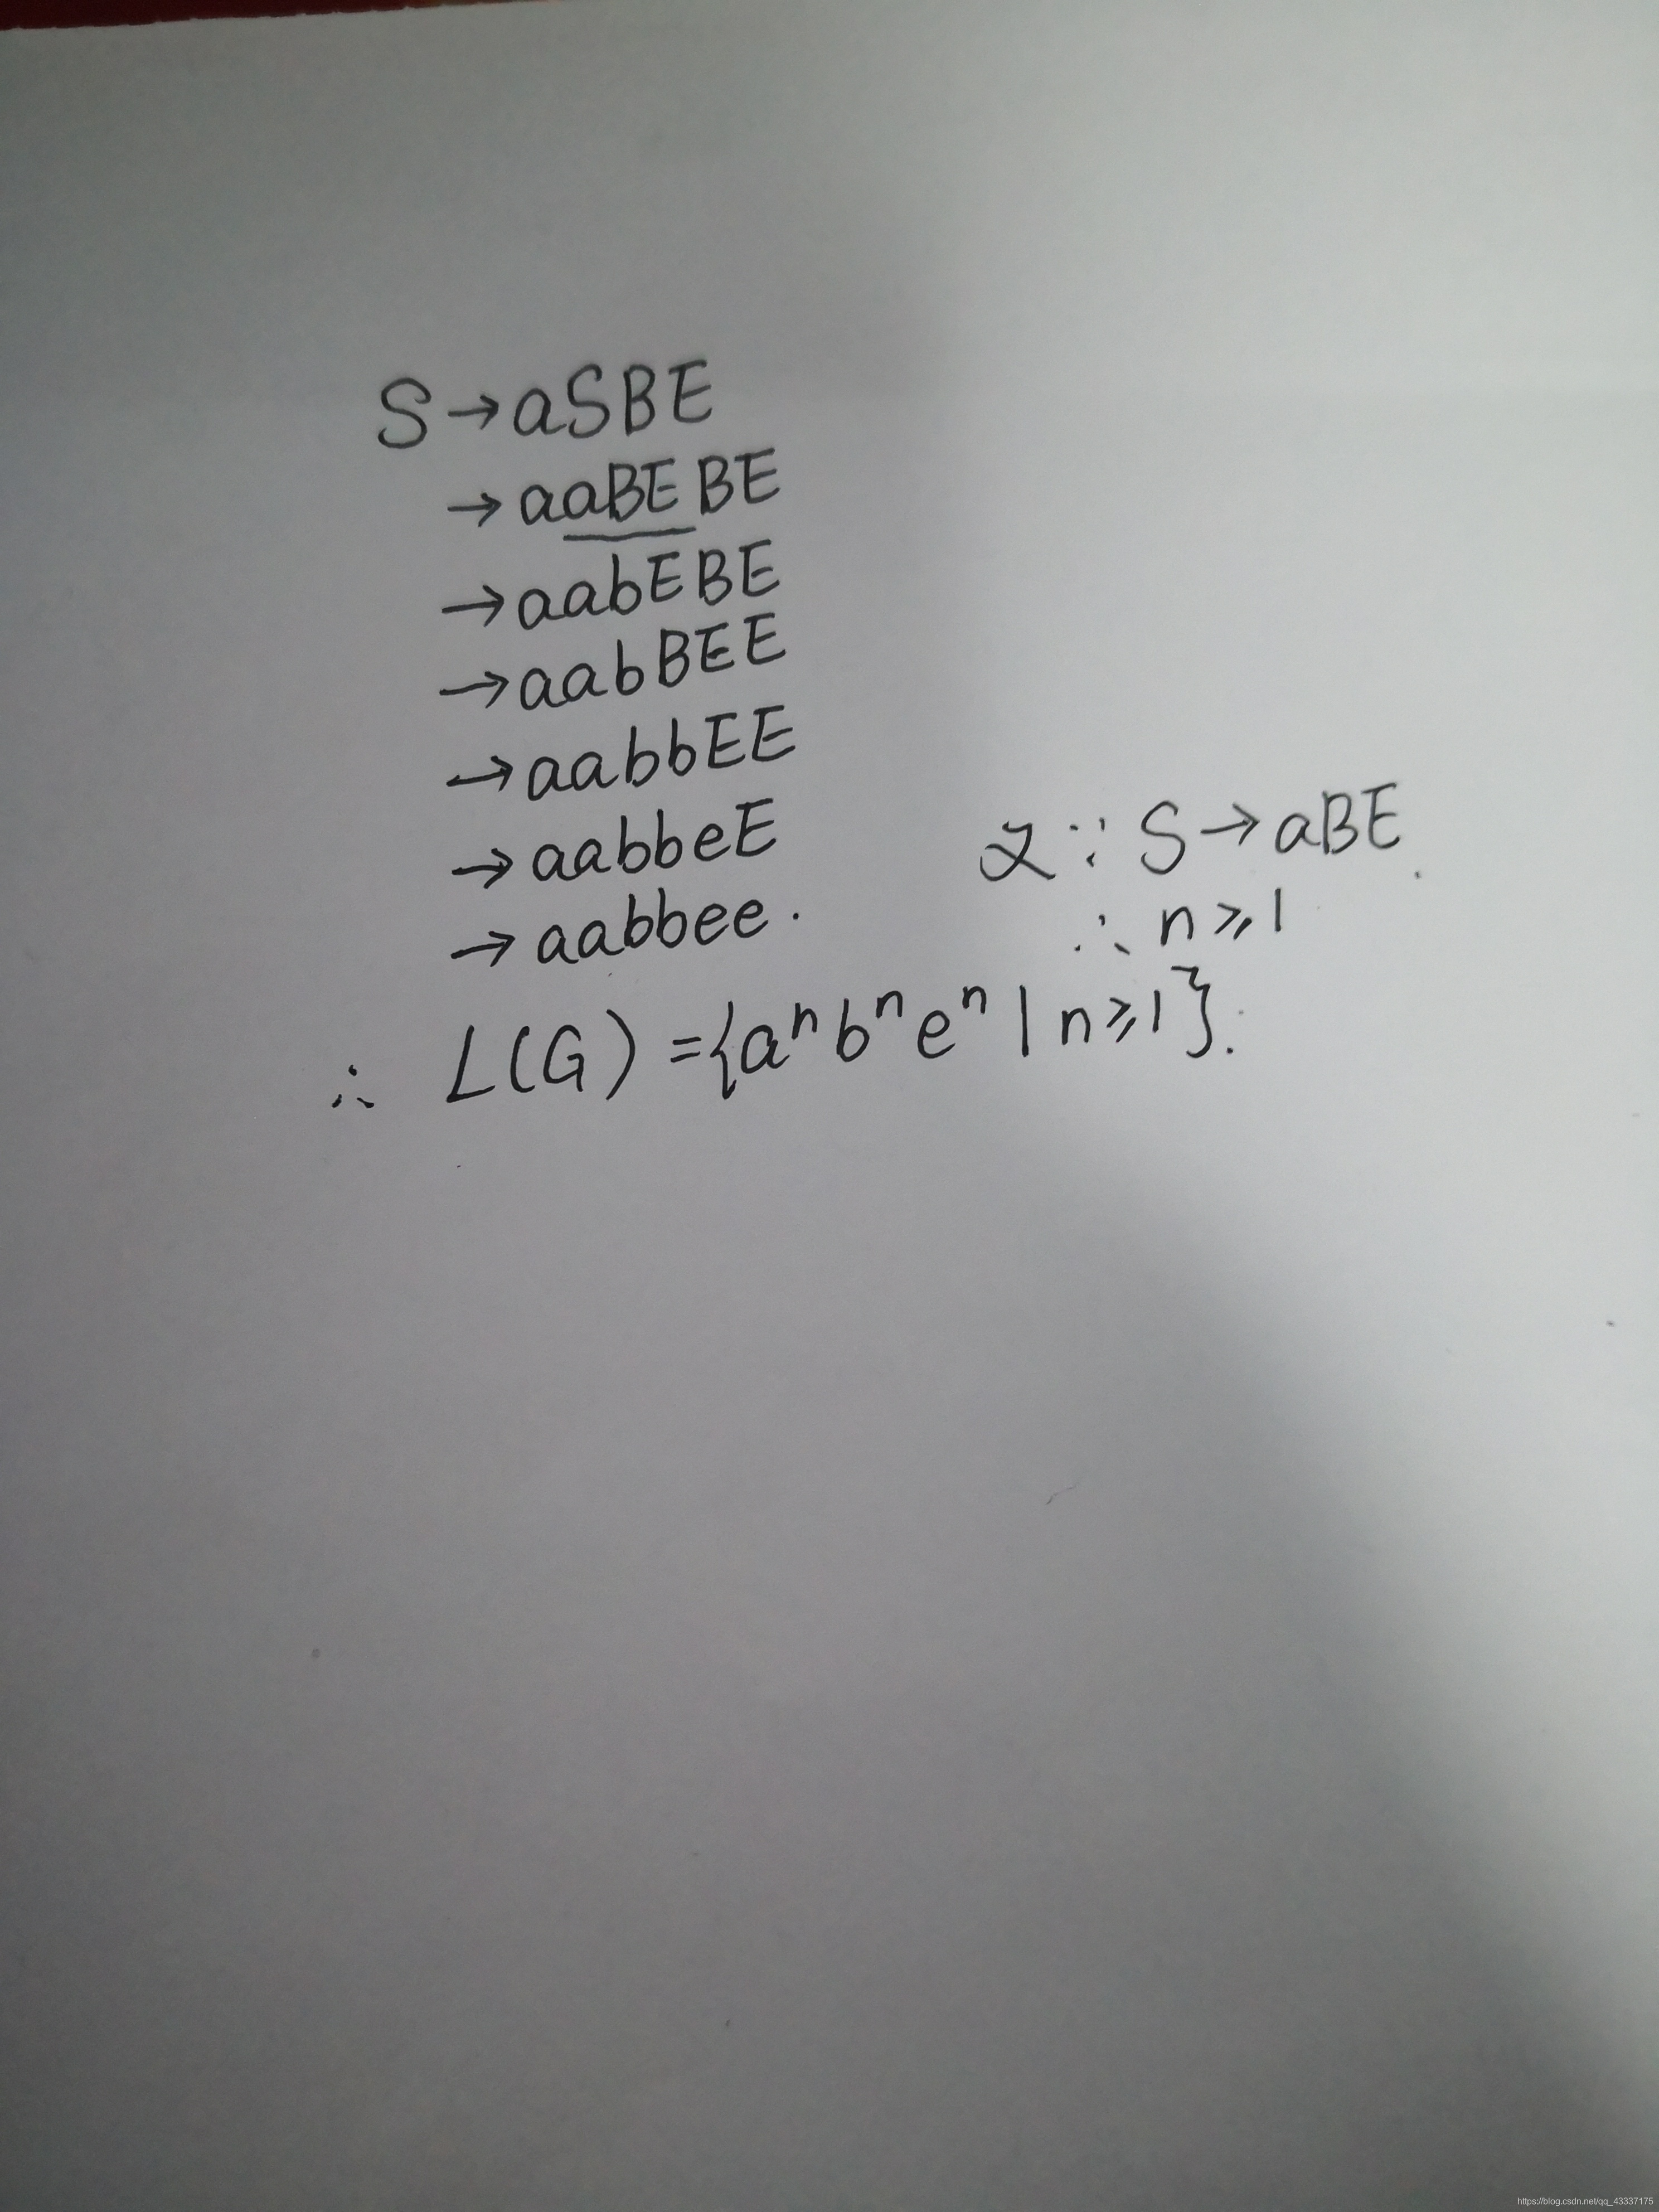 S→aSBE
→aaBEBE
→aabEBE
→aabBEE
→aabbEE
→aabbeE
→aabbee.
又∵S→aBE.
∴n≥1
∴ L(G)={aⁿbⁿeⁿ|n≥1}.
https://blog.csdn.net/qq_43337175